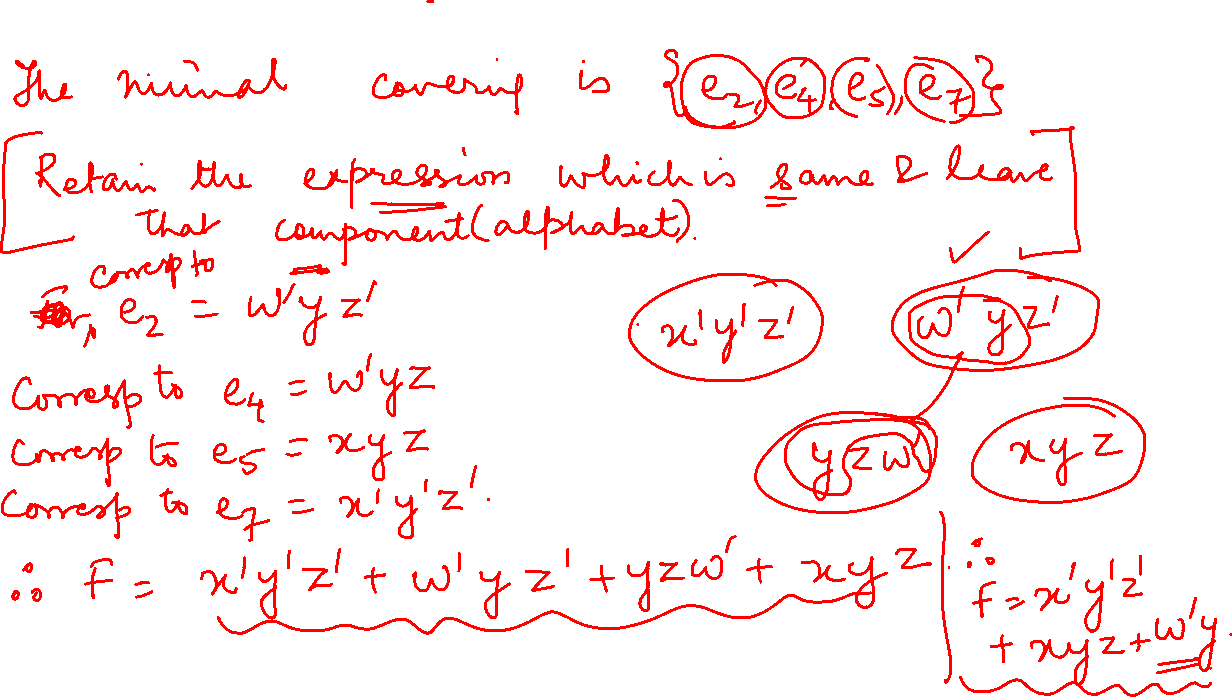 The minimal covering is {e2, e4, e5, e7}
[Retain the expression which is same & leave
that component (alphabet).]
corresp to
e2 = w'yz'
x'y'z' w'yz'
Corresp to e4 = w'yz
yzw' xyz
Corresp to e5 = xyz
Corresp to e7 = x'y'z'.
∴ F = x'y'z' + w'yz' + yzw' + xyz
∴
F = x'y'z'
+ xyz + w'y.